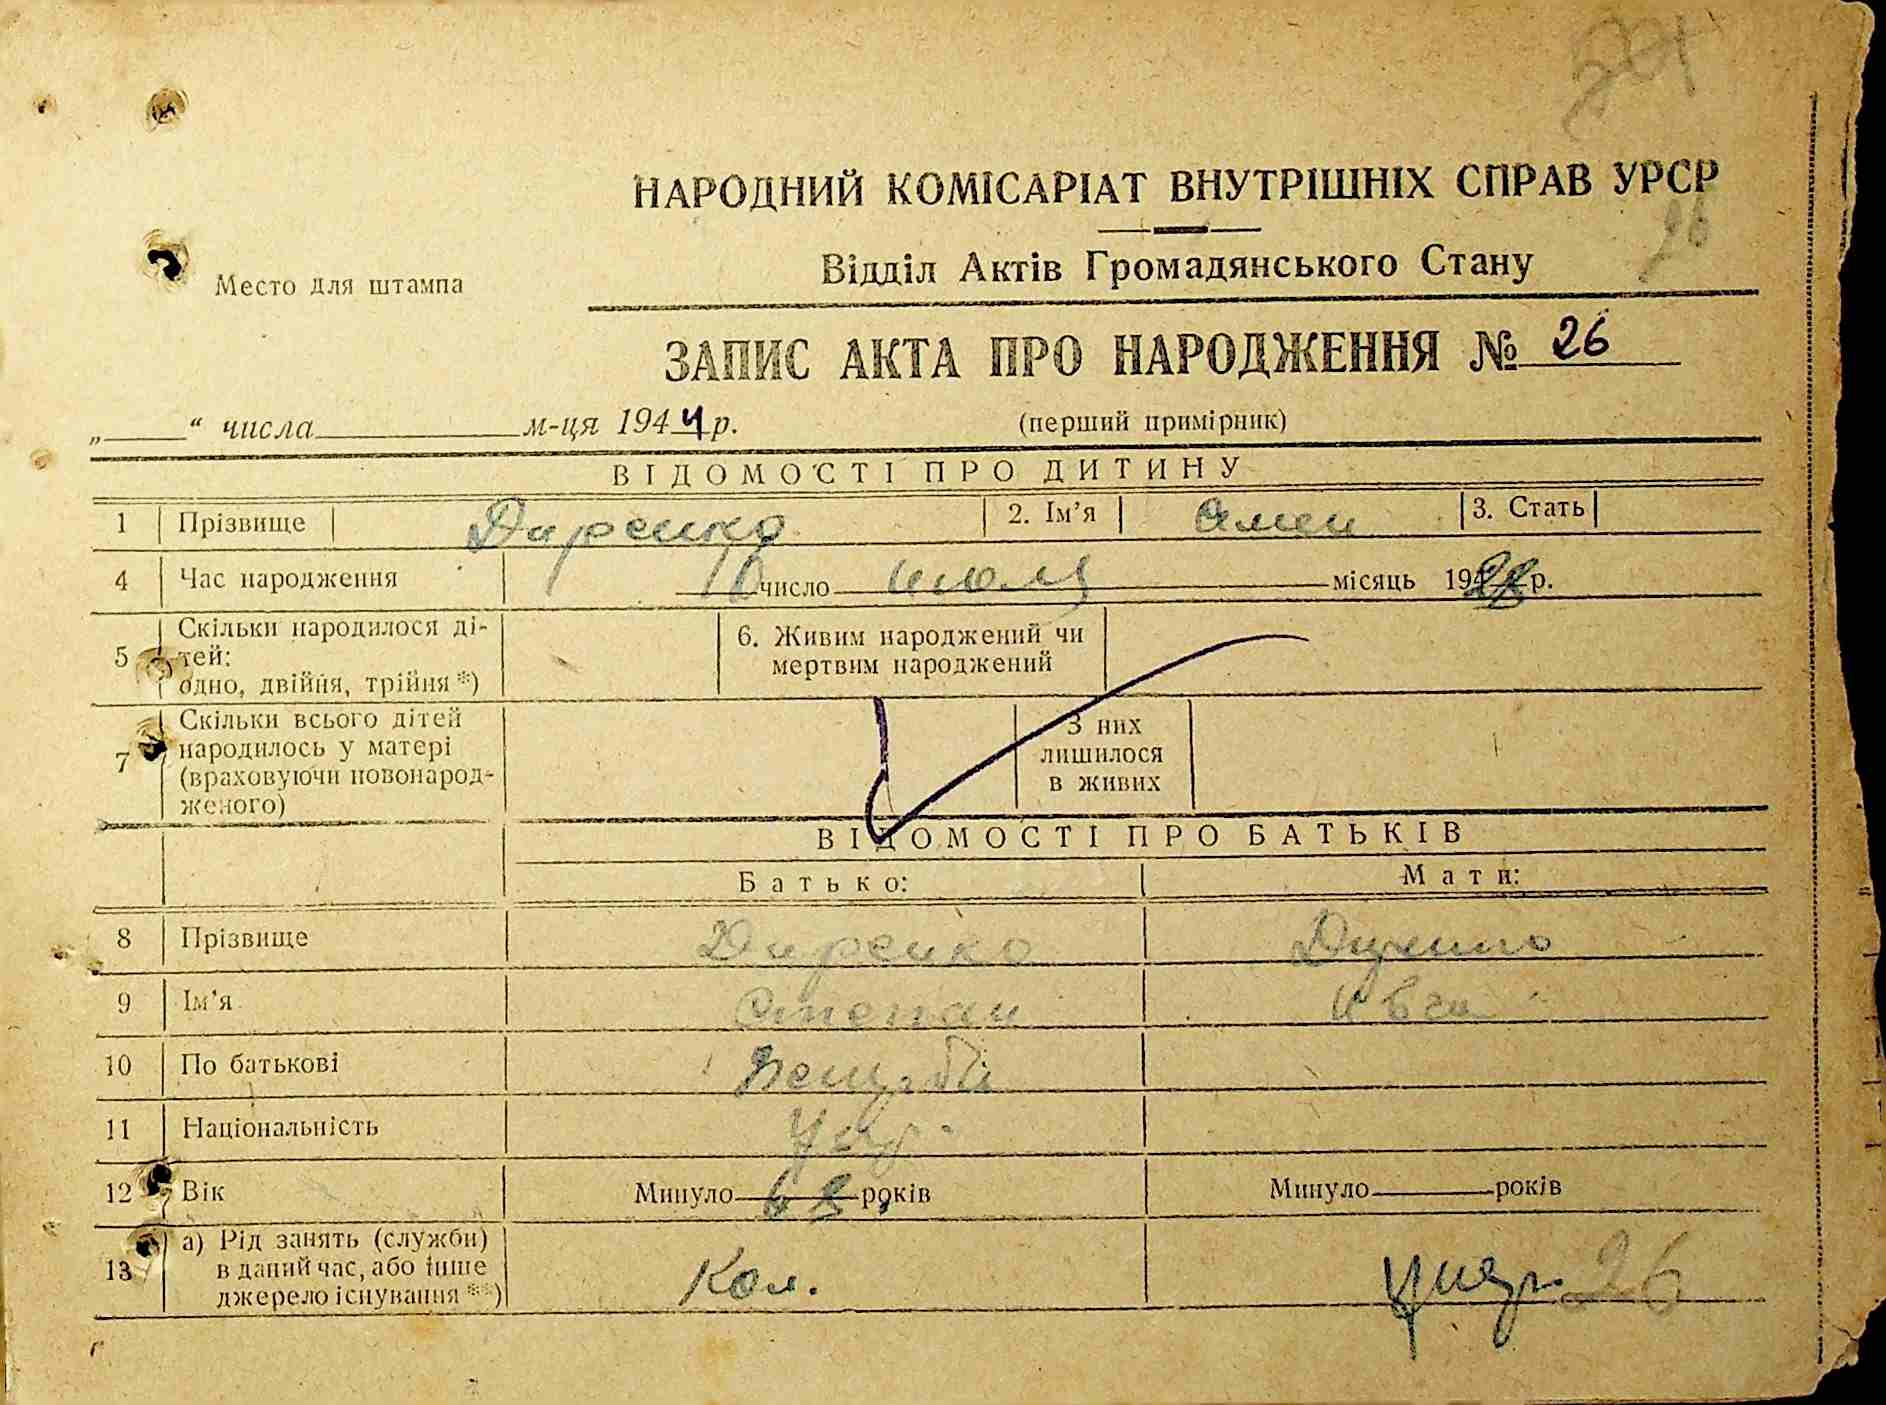 НАРОДНИЙ КОМІСАРІАТ ВНУТРІШНІХ СПРАВ УРСР
26
Відділ Актів Громадянського Стану
Место для штампа
ЗАПИС АКТА ПРО НАРОДЖЕННЯ № 26
„ “ числа м-ця 1944 р. (перший примірник)
ВІДОМОСТІ ПРО ДИТИНУ
1 Прізвище Диренко 2. Ім’я 3. Стать
4 Час народження число июля місяць 19 р.
5 Скільки народилося ді-
тей:
одно, двійня, трійня*)
6. Живим народжений чи
мертвим народжений
7 Скільки всього дітей
народилось у матері
(враховуючи новонарод-
женого)
З них
лишилося
в живих
ВІДОМОСТІ ПРО БАТЬКІВ
Батько: Мати:
8 Прізвище Диренко
9 Ім’я Степан
10 По батькові
11 Національність Укр.
12 Вік Минуло років Минуло років
13 а) Рід занять (служби)
в даний час, або інше
джерело існування **)
Кол. 26